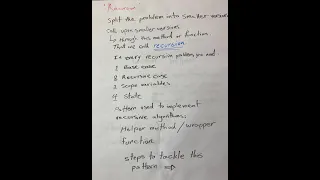 Recursion
split the problem into smaller versions
call with smaller versions
↳ through this method or function
that we call recursion
in every recursion problem you need
1 Base case
2 Recursive case
3 Scope variables
4 State
pattern used to implement
recursive algorithms:
Helper method / wrapper
function
steps to tackle this
pattern ⇒